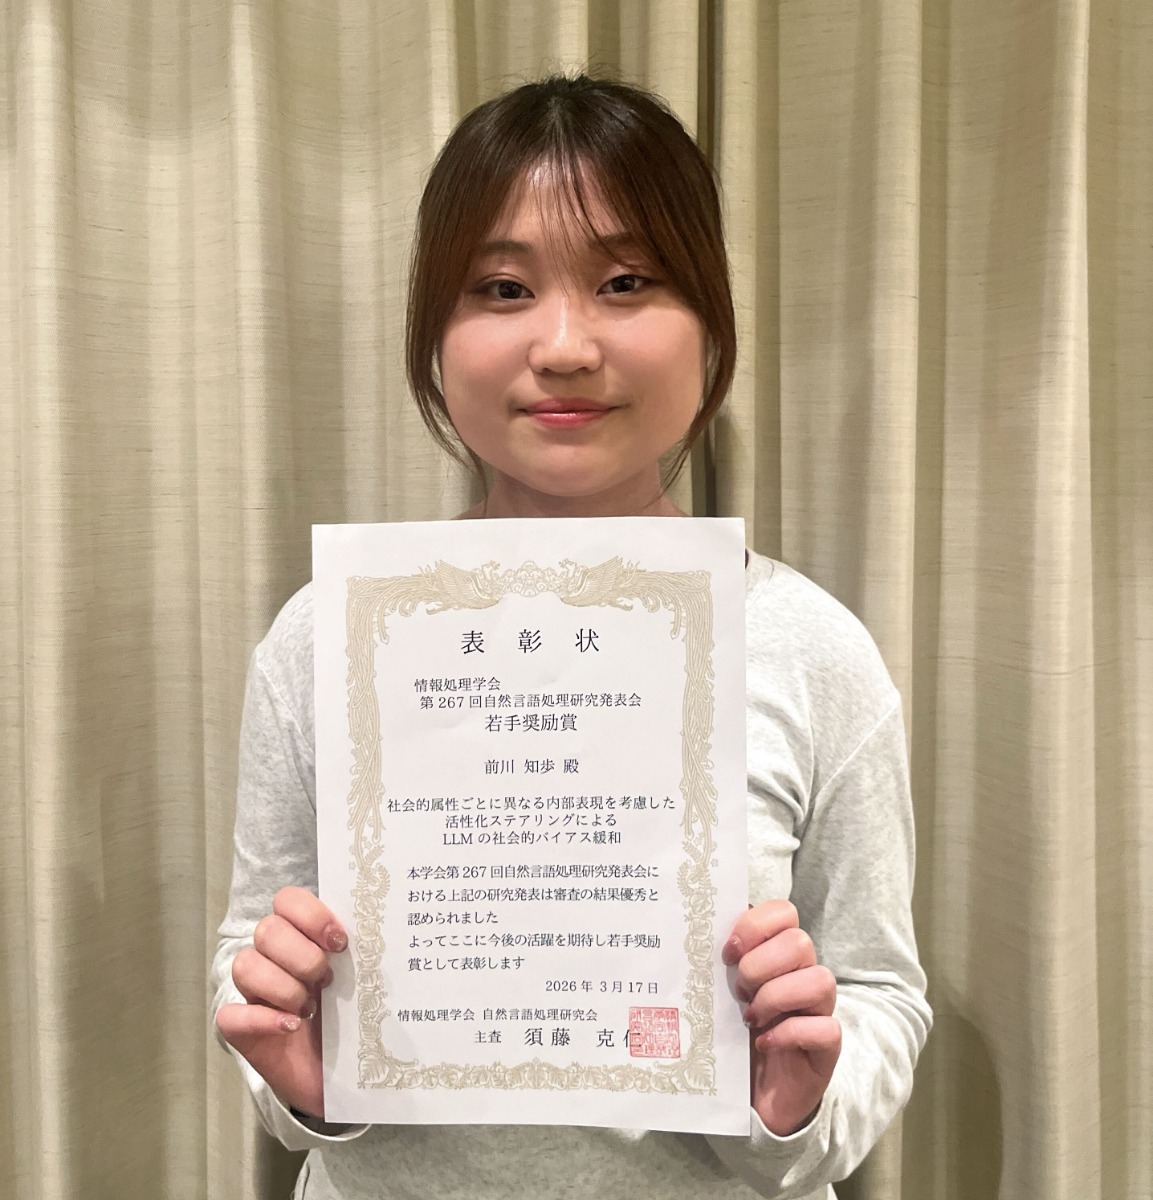 表 彰 状
情報処理学会
第 267 回自然言語処理研究発表会
若手奨励賞
前川 知歩 殿
社会的属性ごとに異なる内部表現を考慮した
活性化ステアリングによる
LLM の社会的バイアス緩和
本学会第 267 回自然言語処理研究発表会に
おける上記の研究発表は審査の結果優秀と
認められました
よってここに今後の活躍を期待し若手奨励
賞として表彰します
2026 年 3 月 17 日
情報処理学会 自然言語処理研究会
主査 須藤 克仁